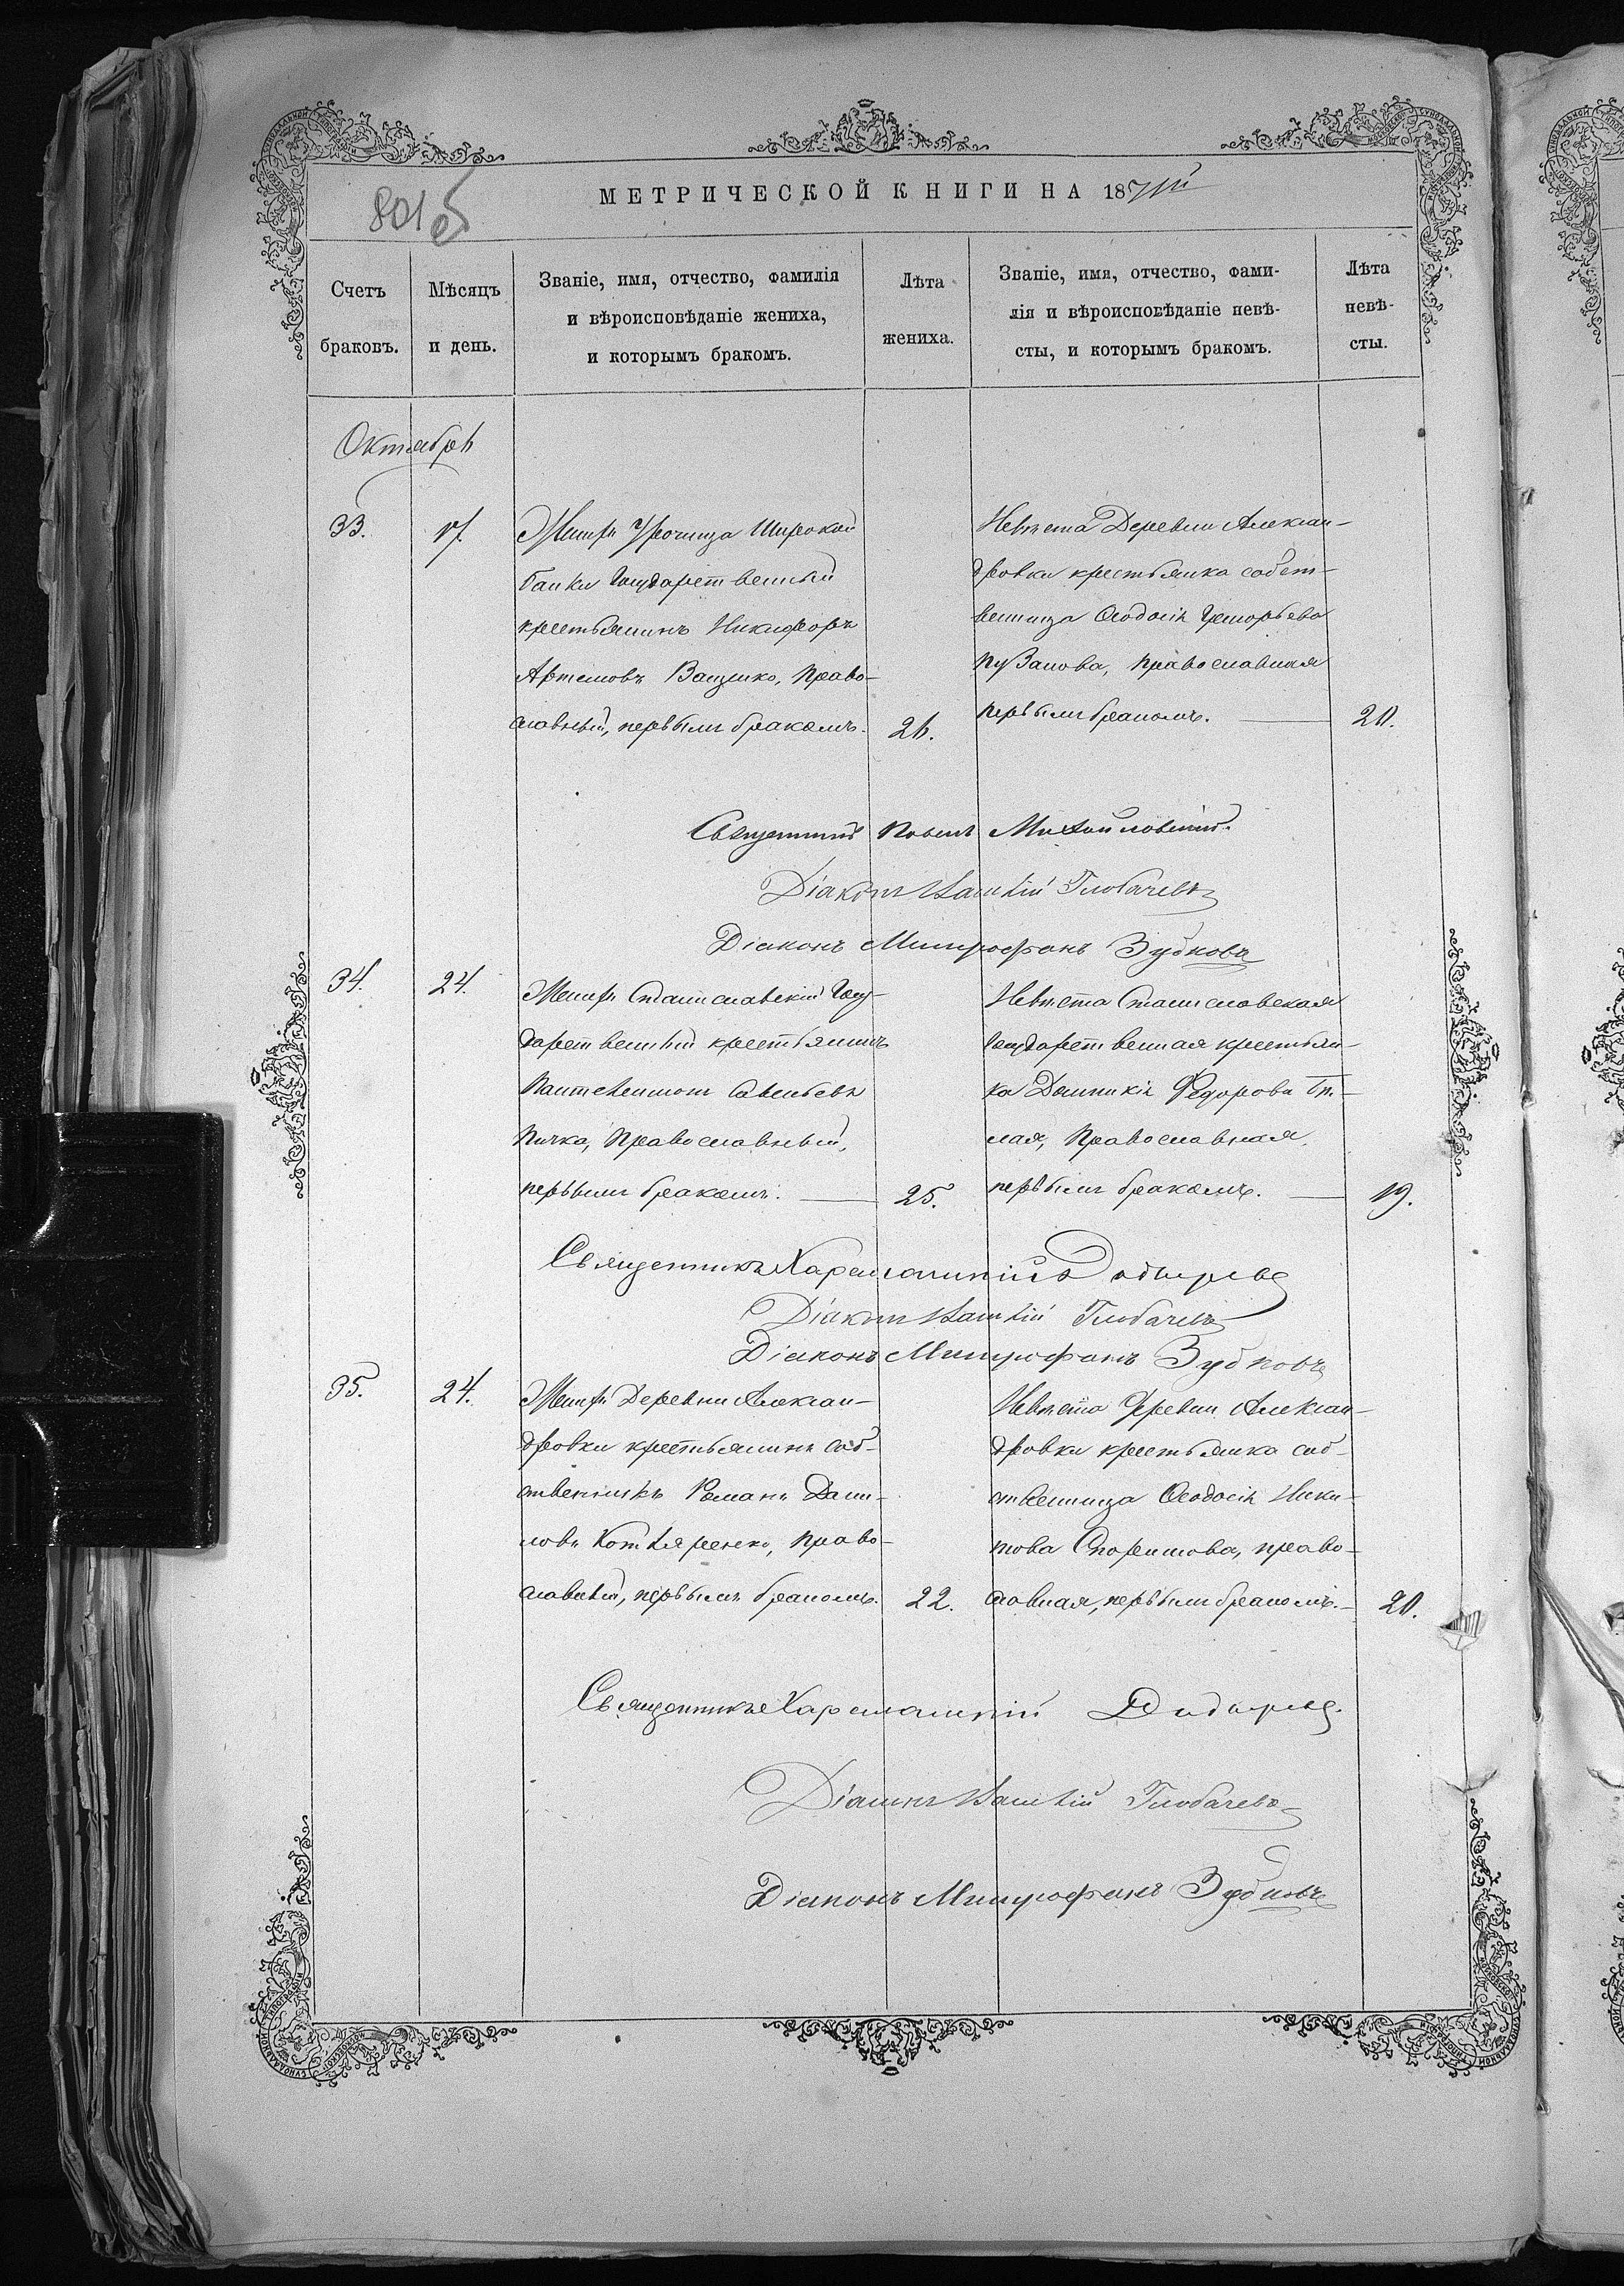 МЕТРИЧЕСКОЙ КНИГИ НА 1871й
801об
Счетъ браковъ.
Мѣсяцъ и день.
Званіе, имя, отчество, фамилія
и вѣроисповѣданіе жениха,
и которымъ бракомъ.
Лѣта жениха.
Званіе, имя, отчество, фами-
лія и вѣроисповѣданіе невѣ-
сты, и которымъ бракомъ.
Лѣта невѣ-
сты.
Октябрь
33.
17.
Женихъ Урочища Широкой
балки Государственный
крестьянинъ Никифоръ
Артемовъ Ващенко, Право-
славный, первымъ бракомъ.
26.
Невѣста Деревни Алексан-
дровки крестьянка собст-
венница Ѳеодосія Григорьева
Пузанова, Православная
первымъ бракомъ.
20.
Священникъ Павелъ Михайловский.
Діаконъ Василій Глобачевъ
Діаконъ Митрофанъ Зубковъ
34.
24.
Женихъ Станиславскій Госу-
дарственный крестьянинъ
Пантелеимонъ Савельевъ
Пичка, Православный,
первымъ бракомъ.
25.
Невѣста Станиславская
Государственная крестьян-
ка Домникія Федорова Бѣ-
лая, Православная,
первымъ бракомъ.
19.
Священникъ Харлампій
Діаконъ Василій Глобачевъ
Діаконъ Митрофанъ Зубковъ
35.
24.
Женихъ Деревни Алексан-
дровки крестьянинъ соб-
ственникъ Романъ Дани-
ловъ Котляренко, Право-
славный, первымъ бракомъ.
22.
Невѣста Деревни Алексан-
дровки крестьянка соб-
ственница Ѳеодосія Ники-
това, право-
славная, первымъ бракомъ.
20.
Священникъ Харлампій
Діаконъ Василій Глобачевъ
Діаконъ Митрофанъ Зубковъ